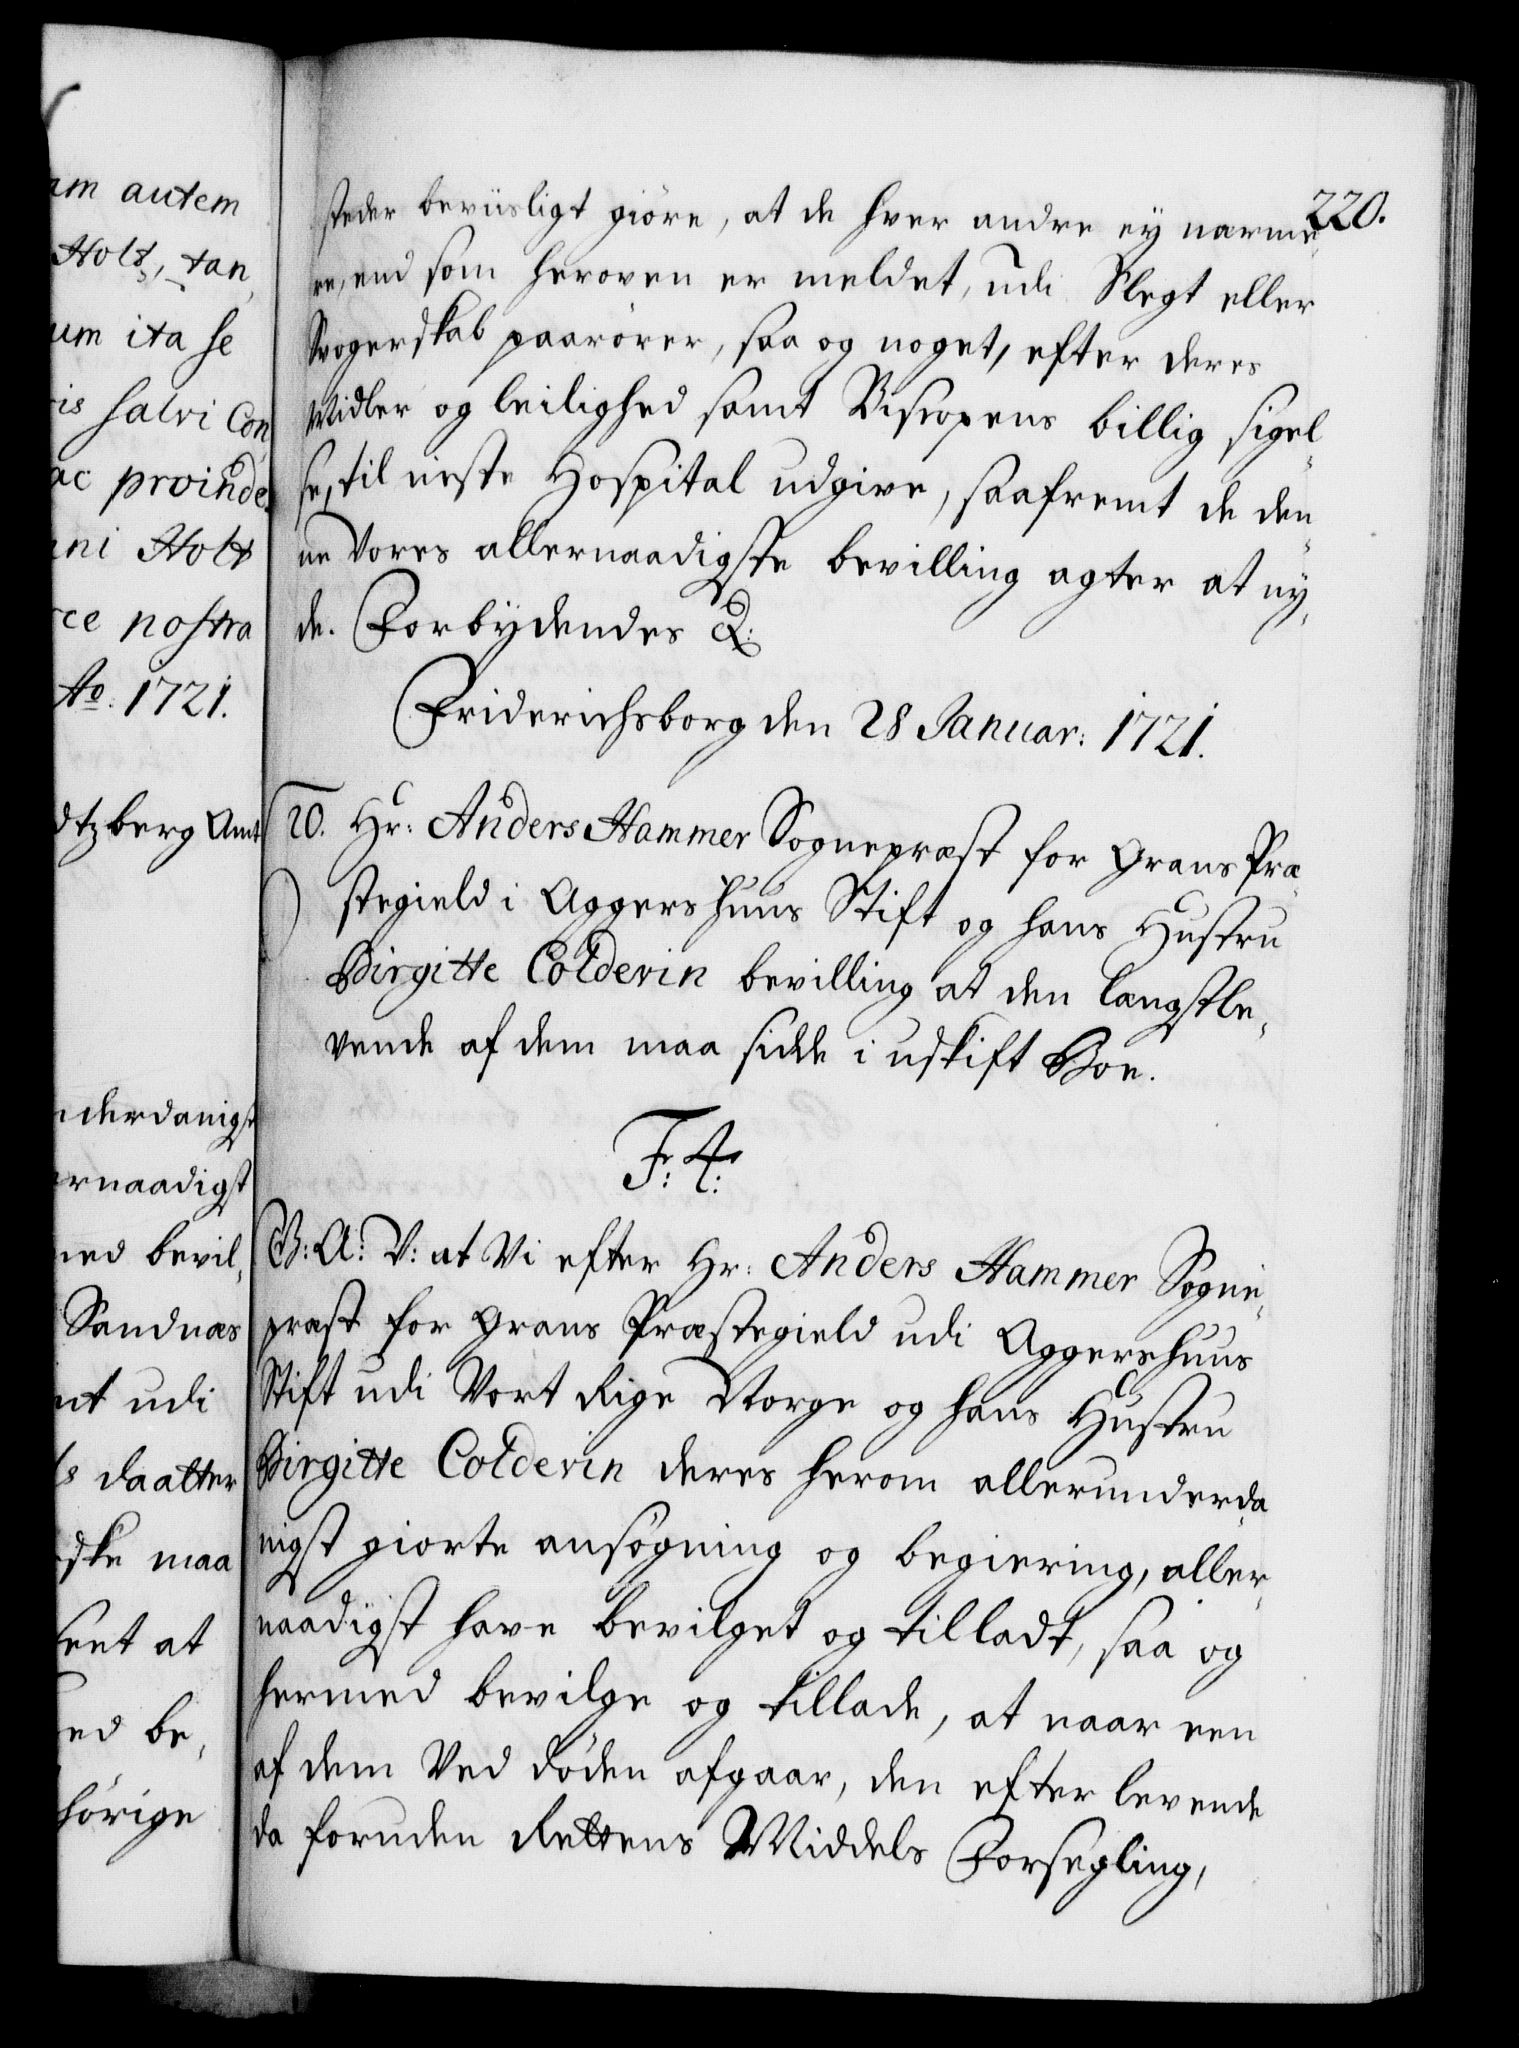 am autem
Holt, tan,
um ita se
is salvi Con,
ac proinde
ni Holt
ce nostra
Ao: 1721.
dtzberg Amt
nderdanigst
ernaadigst
med bevil,
Sandnæs
nt udi
s daatter
dske maa
sent at
ed be,
hörige
220.
steder beviisligt giöre, at de hver andre ey nærme,
re, end som heroven er meldet, udi Slegt eller
Svogerskab paarörer, saa og noget, efter deres
Midler og leilighed samt Biscopens billig sigel,
se, til neste Hospital udgive, saafremt de den,
ne Vores allernaadigste bevilling agter at ny,
de. Forbydendes &:
Friderichsborg den 28 Januar: 1721.
20. Hr: Anders Hammer Sognepræst for Grans Præ,
stegield i Aggershuus Stift og hans Hustru
Birgitte Colderin bevilling at den længstle,
vende af dem maa sidde i uskift Boe.
F: 4:
G: A: V: at Vi efter Hr: Anders Hammer Sogne,
præst for Grans Præstegield udi Aggershuus
Stift udi Vort Rige Norge og hans Hustru
Birgitte Colderin deres herom allerunderda,
nigst giorte ansögning og begiering, aller,
naadigst have bevilget og tilladt, saa og
hermed bevilge og tillade, at naar een
af dem Ved döden afgaar, den efter levende
da foruden Rettens Middels Forsegling,